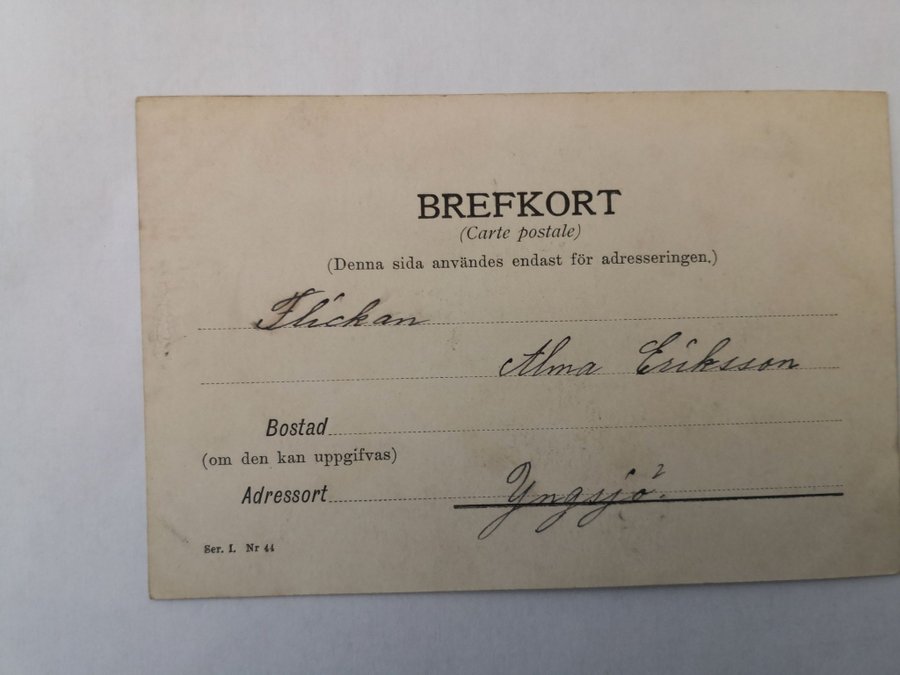 BREFKORT
(Carte postale)
(Denna sida användes endast för adresseringen.)
Flickan
Alma Eriksson
Bostad
(om den kan uppgifvas)
Adressort Yngsjö.
Ser. I. Nr 44